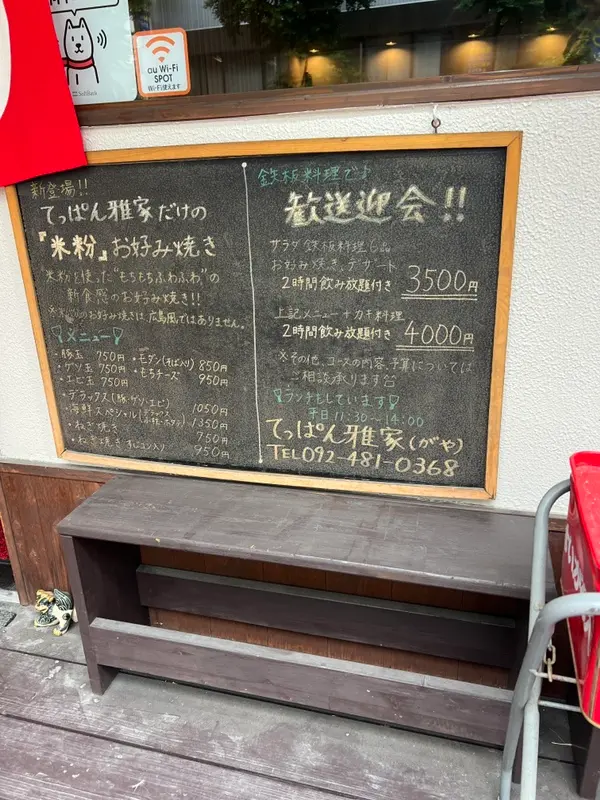 au Wi-Fi
SPOT
Wi-Fi使えます
SoftBank
新登場!!
てっぱん雅家だけの
『米粉』お好み焼き
米粉を使った"もちもちふわふわ"の
新食感のお好み焼き!!
のお好み焼きは、広島風ではありません。
メニュー
・豚玉 750円
・ゲソ玉 750円
・エビ玉 750円
・モダン(そば入り) 850円
・もちチーズ 950円
・デラックス(豚・ゲソ・エビ) 1050円
・海鮮スペシャル 1350円
・ねぎ焼き 750円
・ねぎ焼き すじコン入り 950円
鉄板料理で♪
歓送迎会!!
サラダ 鉄板料理6品
お好み焼き、デザート
2時間飲み放題付き 3500円
上記メニュー+カキ料理
2時間飲み放題付き 4000円
※その他、コースの内容、予算については
ご相談承ります
ランチもしています
平日 11:30〜14:00
てっぱん雅家(がや)
TEL092-481-0368